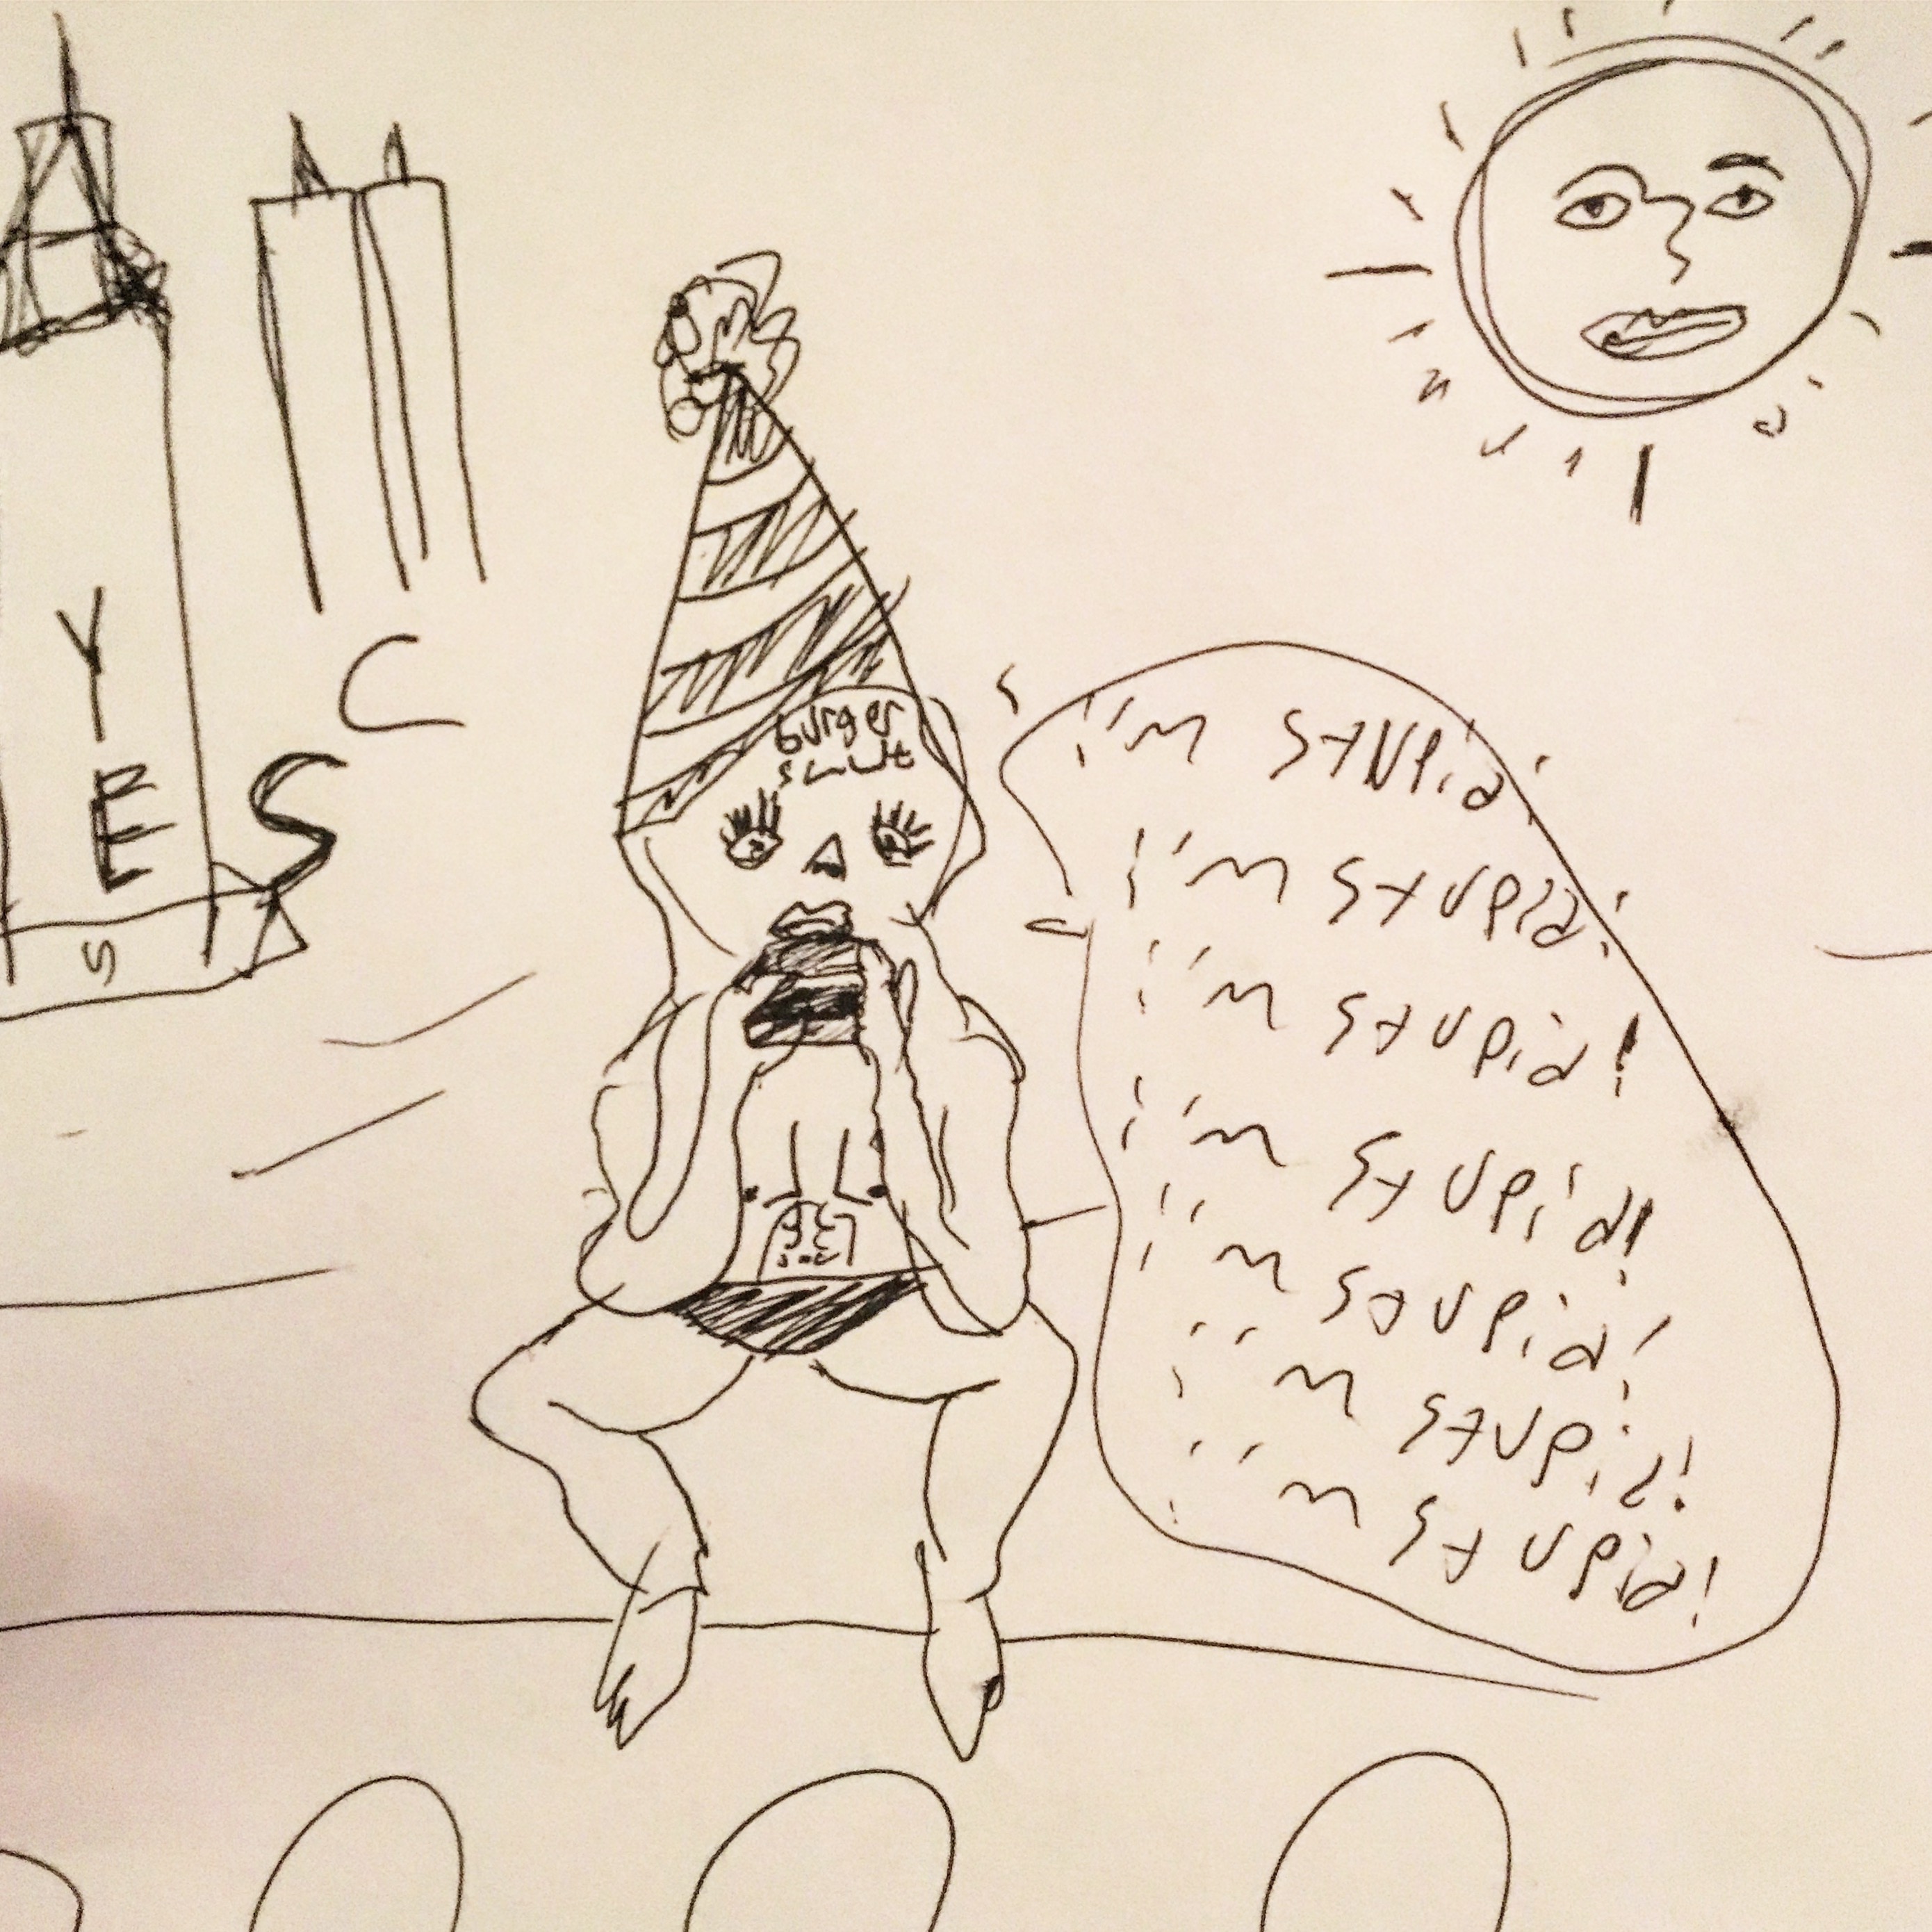 Y C
E S
s
burger
slut
i'm stupid!
i'm stupid!
i'm stupid!
i'm stupid!
i'm stupid!
i'm stupid!
i'm stupid!